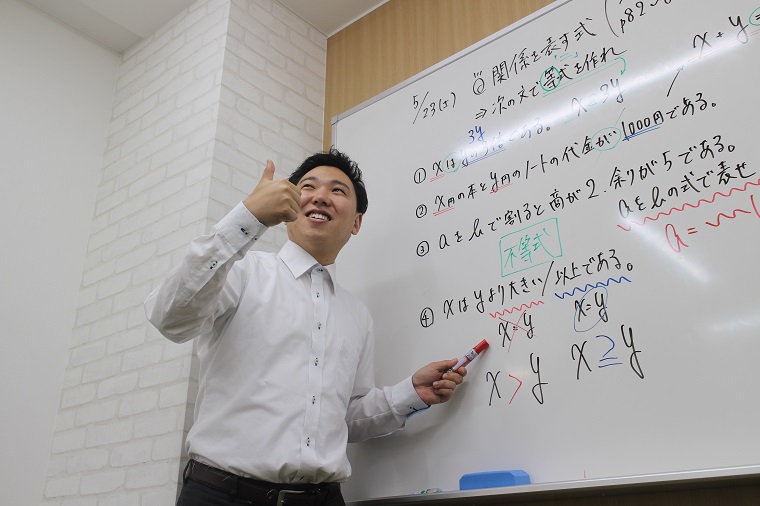 5/23(土) 関係を表す式 (p82~
⇒ 次の文で等式を作れ
x=3y
x+y=
3y
① xはyの3倍である。
② x円の本とy円のノートの代金が1000円である。
③ aをbで割ると商が2.余りが5である。
aをbの式で表せ
a=
不等式
④ xはyより大きい/以上である。
x=y x=y
x>y x≧y